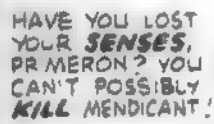 HAVE YOU LOST
YOUR SENSES,
DR MERON? YOU
CAN'T POSSIBLY
KILL MENDICANT!